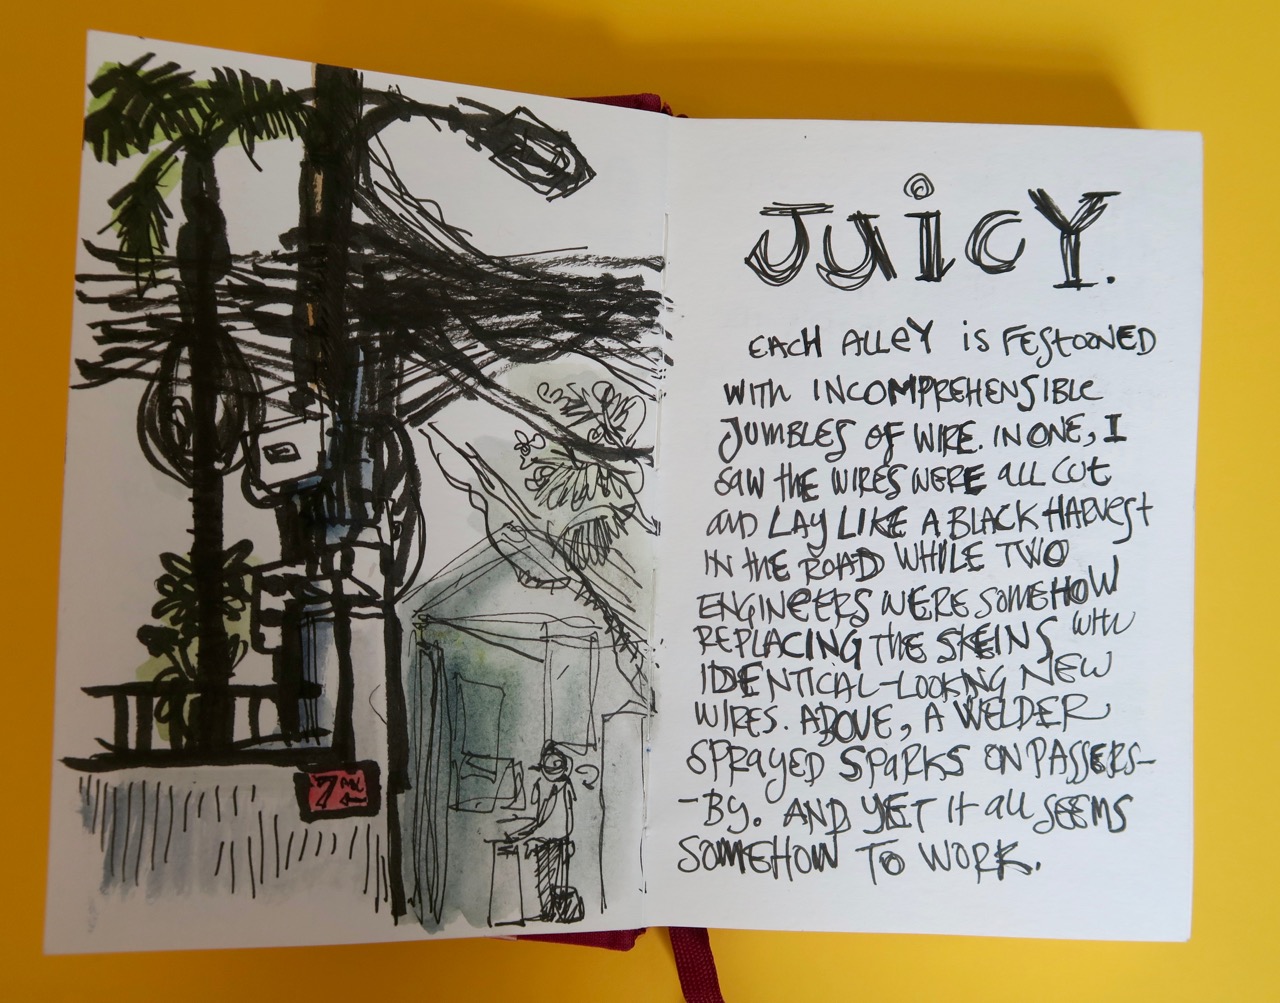 JUiCY.
EACH ALLEY iS FESTOONED
WITH INCOMPREHENSIBLE
JUMBLES OF WIRE. IN ONE, I
SAW THE WIRES WERE ALL CUT
AND LAY LIKE A BLACK HARVEST
IN THE ROAD WHILE TWO
ENGINEERS WERE SOMEHOW
REPLACING THE SKEINS WITH
IDENTICAL-LOOKING NEW
WIRES. ABOVE, A WELDER
SPRAYED SPARKS ON PASSERS-
-BY. AND YET IT ALL SEEMS
SOMEHOW TO WORK.
7